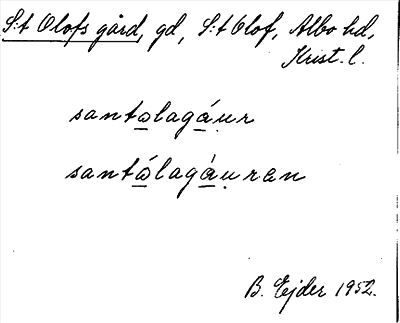 S:t Olofs gård, gd, S:t Olof, Albo hd,
Krist. l.
santo̲laga̲ụr
santó̲lagá̲ụren
B. Ejder 1952.